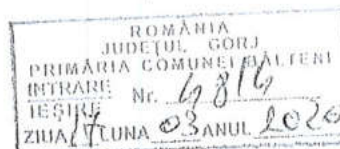 ROMÂNIA
JUDEȚUL GORJ
PRIMĂRIA COMUNEI BÂLTENI
INTRARE
IEȘIRE Nr. 6816
ZIUA 17 LUNA 03 ANUL 2020